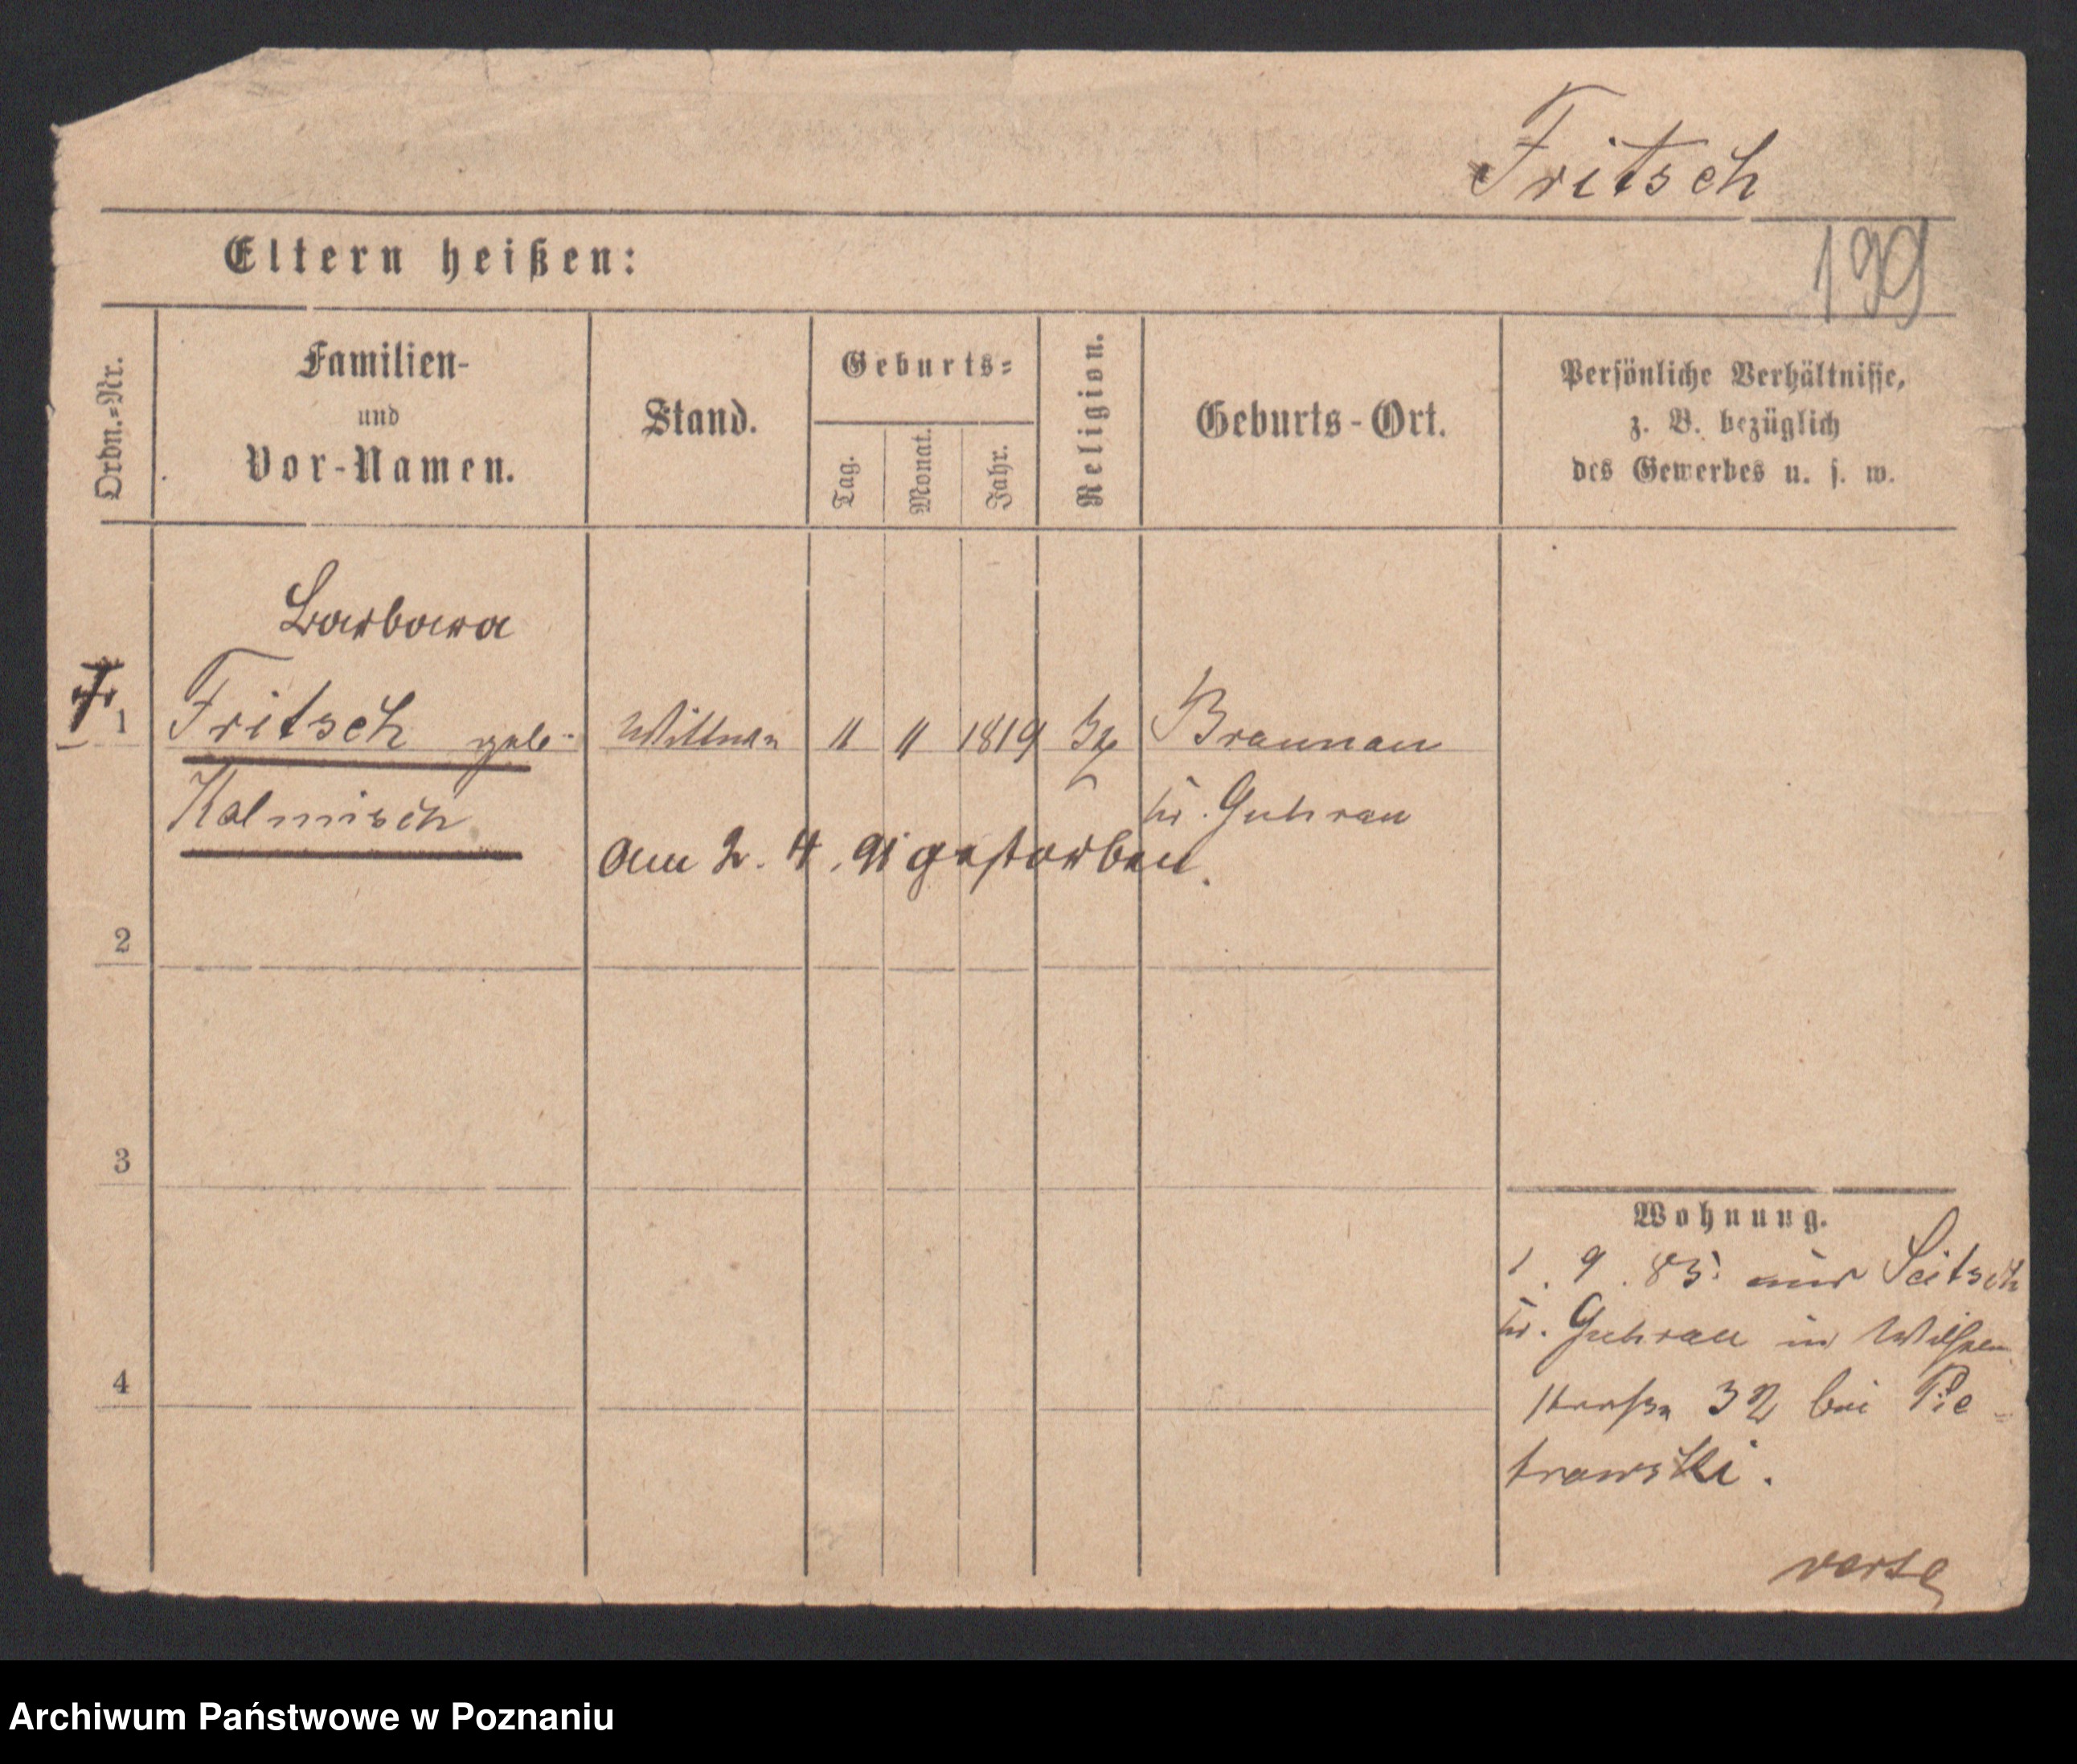 Fritsch
199
Eltern heißen:
Ordn.=Nr.
Familien-
und
Vor-Namen.
Stand.
Geburts=
Tag.
Monat.
Jahr.
Religion.
Geburts-Ort.
Persönliche Verhältnisse,
z. B. bezüglich
des Gewerbes u. s. w.
Barbara
1 Fritsch geb. Wittwe " " 1819 Braunau
Kalmisch Kr. Guhrau
am 2. 4. 91 gestorben.
2
3
4
Wohnung.
1. 9. 85. aus Seitsch
Kr. Guhrau in Wilhelm
straße 32 bei Pie-
trowski.
verte
Archiwum Państwowe w Poznaniu